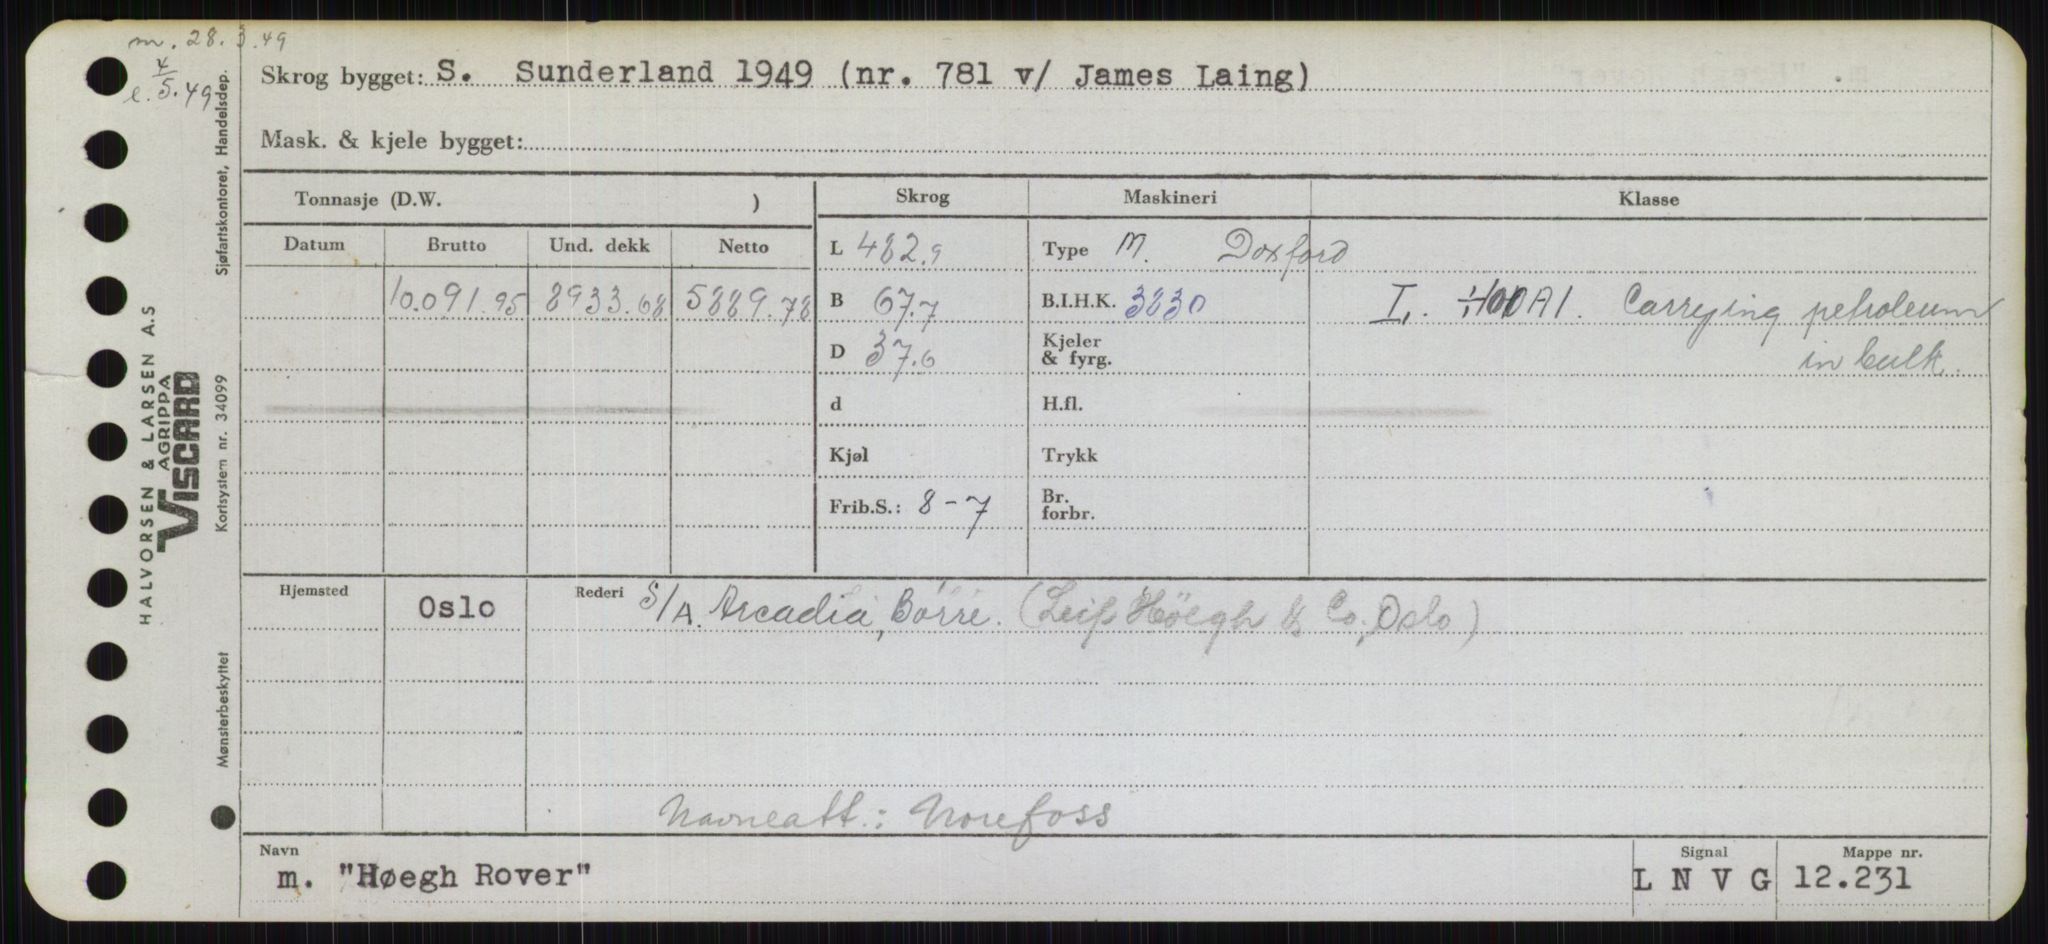 m. 28.3.49
e. 4/5.49
Skrog bygget: S. Sunderland 1949 (nr. 781 v/ James Laing)
Mask. & kjele bygget:
Tonnasje (D.W. )
Skrog
Maskineri
Klasse
Datum
Brutto
Und. dekk
Netto
L 482.9
Type M. Doxford
10.091.95
8933.68
5889.78
B 67.7
B.I.H.K. 3830
Carrying petroleum
in bulk.
D 37.6
Kjeler
& fyrg.
d
H.fl.
Kjøl
Trykk
Frib.S.: 8-7
Br.
forbr.
Hjemsted
Oslo
Rederi S/A. Arcadia, Börre. (Leif Höegh & Co., Oslo)
Navneatt.: Norefoss
Navn
m. "Høegh Rover"
Signal
L N V G
Mappe nr.
12.231
HALVORSEN & LARSEN A.S
AGRIPPA
VISCARD
Sjøfartskontoret, Handelsdep.
Kortsystem nr. 34099
Mønsterbeskyttet